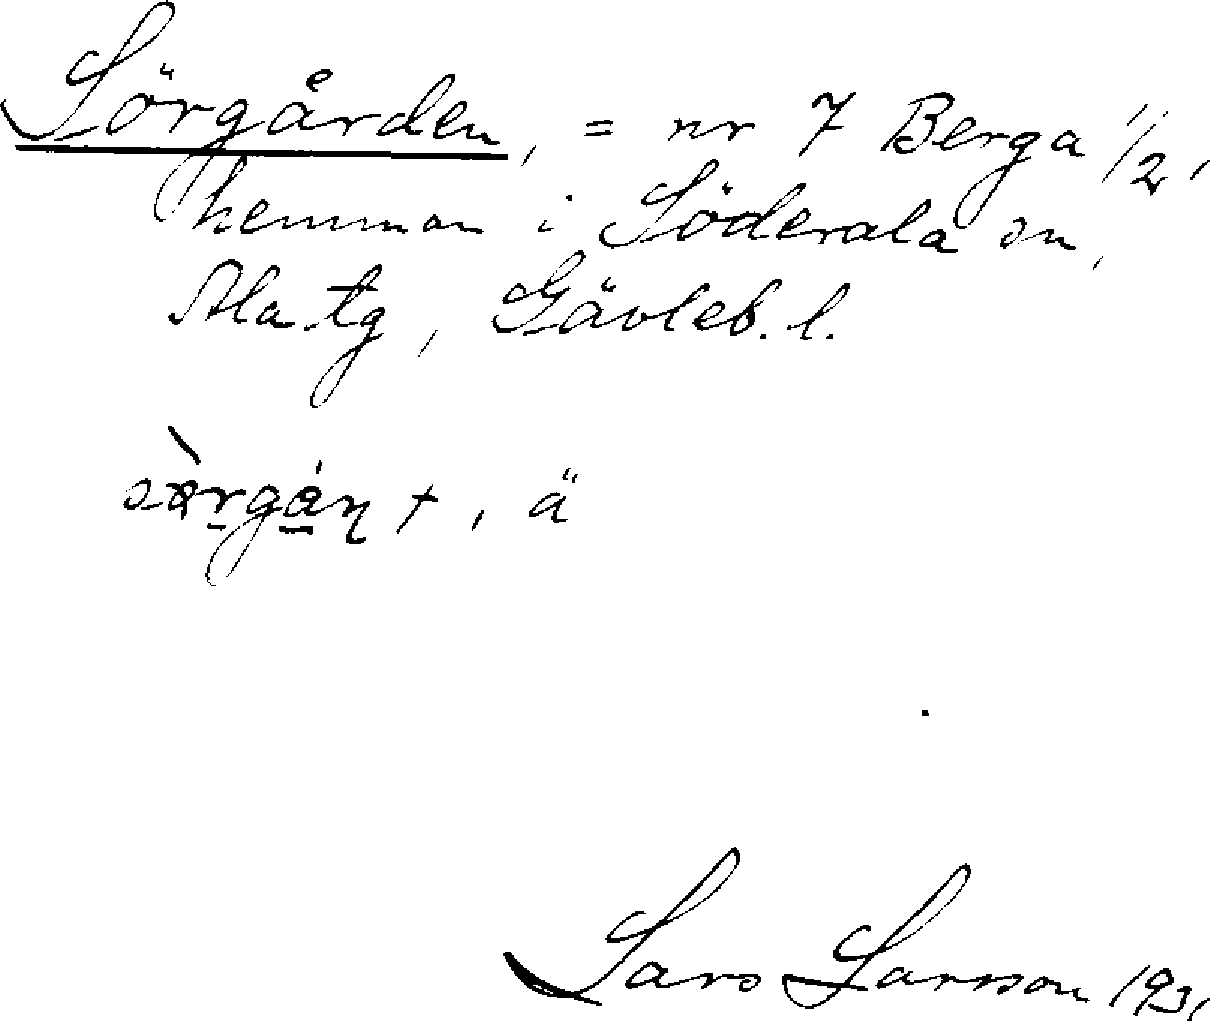 Sörgården, = nr 7 Berga 1/2,
hemman i Söderala sn,
Ala tg, Gävleb. l.
, ä
Lars Larsson 1931